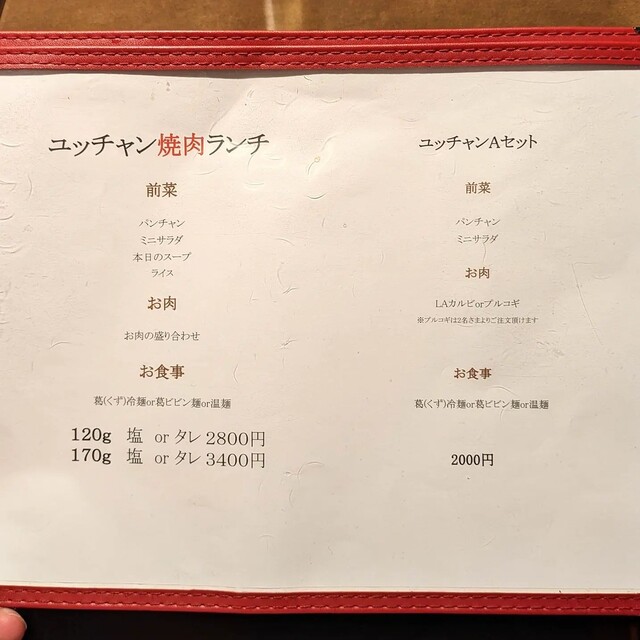 ユッチャン焼肉ランチ
前菜
パンチャン
ミニサラダ
本日のスープ
ライス
お肉
お肉の盛り合わせ
お食事
葛(くず)冷麺or葛ビビン麺or温麺
120g 塩 or タレ 2800円
170g 塩 or タレ 3400円
ユッチャンAセット
前菜
パンチャン
ミニサラダ
お肉
LAカルビorプルコギ
※プルコギは2名さまよりご注文頂けます
お食事
葛(くず)冷麺or葛ビビン麺or温麺
2000円